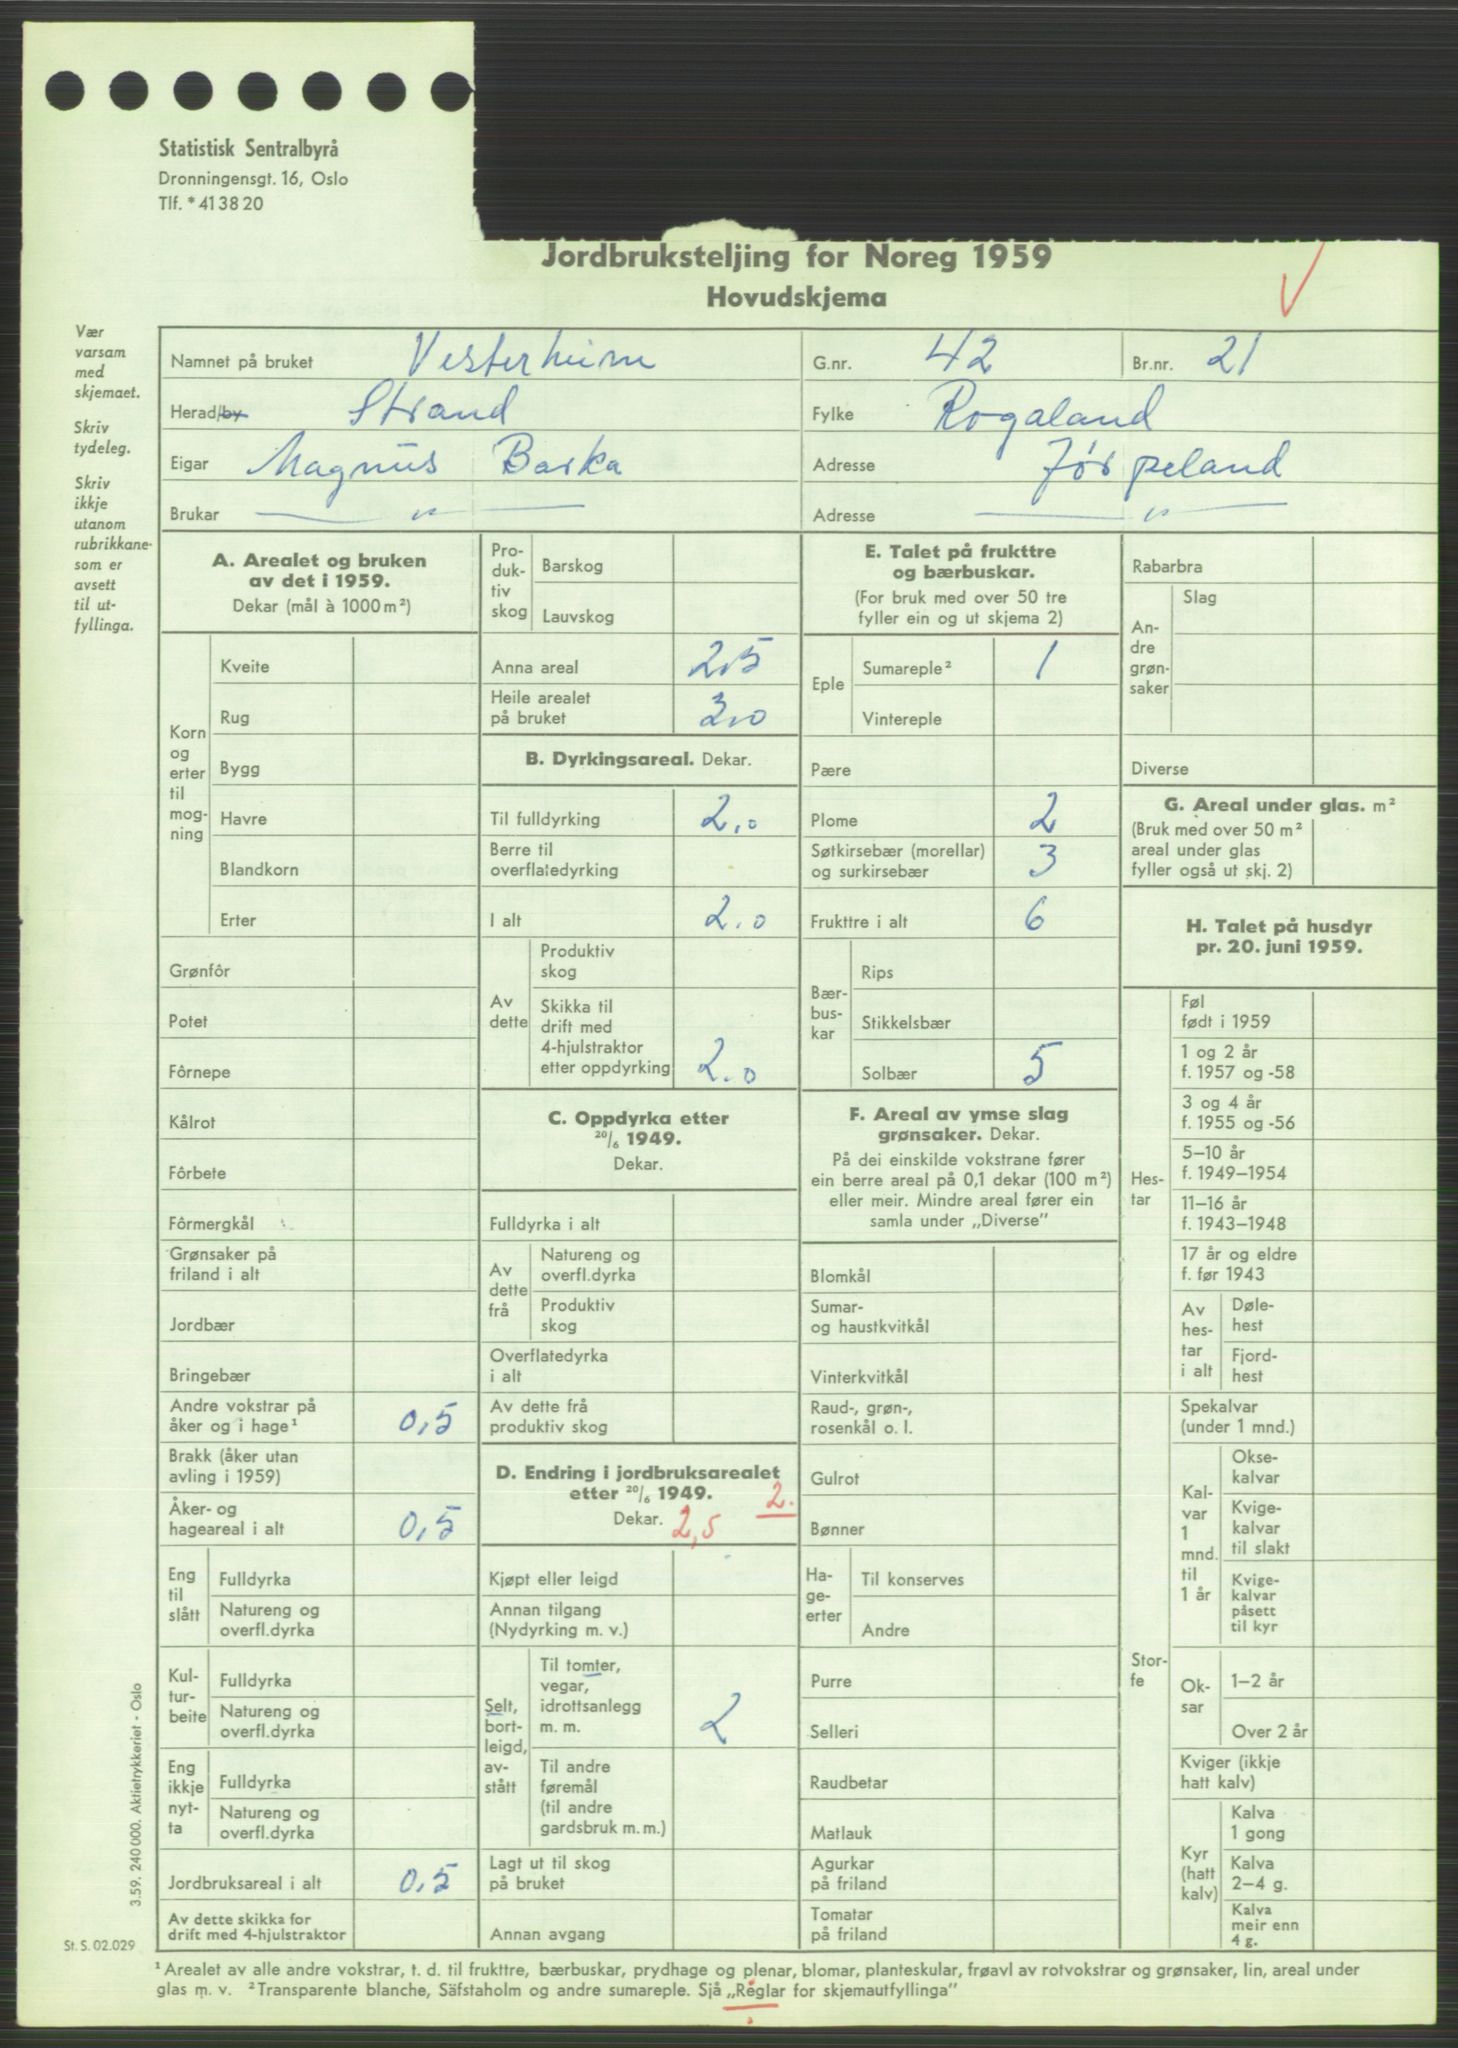 Statistisk Sentralbyrå
Dronningensgt. 16, Oslo
Tlf. * 41 38 20
Jordbruksteljing for Noreg 1959
Hovudskjema
Vær
varsam
med
skjemaet.
Skriv
tydeleg.
Skriv
ikkje
utanom
rubrikkane
som er
avsett
til ut-
fyllinga.
Namnet på bruket Vesterheim G.nr. 42 Br.nr. 21
Herad/by Strand Fylke Rogaland
Eigar Magnus Barka Adresse Jørpeland
Brukar — " — Adresse — " —
A. Arealet og bruken
av det i 1959.
Dekar (mål à 1000 m²)
Korn og erter til mog-ning
Kveite
Rug
Bygg
Havre
Blandkorn
Erter
Grønfôr
Potet
Fôrnepe
Kålrot
Fôrbete
Fôrmergkål
Grønsaker på
friland i alt
Jordbær
Bringebær
Andre vokstrar på
åker og i hage¹ 0,5
Brakk (åker utan
avling i 1959)
Åker- og
hageareal i alt 0,5
Eng til slått
Fulldyrka
Natureng og
overfl.dyrka
Kul-tur-beite
Fulldyrka
Natureng og
overfl.dyrka
Eng ikkje nyt-ta
Fulldyrka
Natureng og
overfl.dyrka
Jordbruksareal i alt 0,5
Av dette skikka for
drift med 4-hjulstraktor
Pro-duk-tiv skog
Barskog
Lauvskog
Anna areal 2,5
Heile arealet
på bruket 3,0
B. Dyrkingsareal. Dekar.
Til fulldyrking 2.0
Berre til
overflatedyrking
I alt 2.0
Av dette
Produktiv
skog
Skikka til
drift med
4-hjulstraktor
etter oppdyrking 2.0
C. Oppdyrka etter
20/6 1949.
Dekar.
Fulldyrka i alt
Av dette frå
Natureng og
overfl.dyrka
Produktiv
skog
Overflatedyrka
i alt
Av dette frå
produktiv skog
D. Endring i jordbruksarealet
etter 20/6 1949. 2.
Dekar. 2,5
Kjøpt eller leigd
Annan tilgang
(Nydyrking m. v.)
Selt, bort-leigd, av-stått
Til tomter,
vegar,
idrottsanlegg
m. m. 2
Til andre
føremål
(til andre
gardsbruk m. m.)
Lagt ut til skog
på bruket
Annan avgang
E. Talet på frukttre
og bærbuskar.
(For bruk med over 50 tre
fyller ein og ut skjema 2)
Eple
Sumareple² 1
Vintereple
Pære
Plome 2
Søtkirsebær (morellar)
og surkirsebær 3
Frukttre i alt 6
Bær-bus-kar
Rips
Stikkelsbær
Solbær 5
F. Areal av ymse slag
grønsaker. Dekar.
På dei einskilde vokstrane fører
ein berre areal på 0,1 dekar (100 m²)
eller meir. Mindre areal fører ein
samla under „Diverse"
Blomkål
Sumar-
og haustkvitkål
Vinterkvitkål
Raud-, grøn-,
rosenkål o. l.
Gulrot
Bønner
Ha-ge-erter
Til konserves
Andre
Purre
Selleri
Raudbetar
Matlauk
Agurkar
på friland
Tomatar
på friland
Rabarbra
An-dre grøn-saker
Slag
Diverse
G. Areal under glas. m²
(Bruk med over 50 m²
areal under glas
fyller også ut skj. 2)
H. Talet på husdyr
pr. 20. juni 1959.
Hes-tar
Føl
født i 1959
1 og 2 år
f. 1957 og -58
3 og 4 år
f. 1955 og -56
5–10 år
f. 1949–1954
11–16 år
f. 1943–1948
17 år og eldre
f. før 1943
Av hes-tar i alt
Døle-
hest
Fjord-
hest
Stor-fe
Spekalvar
(under 1 mnd.)
Kal-var 1 mnd. til 1 år
Okse-
kalvar
Kvige-
kalvar
til slakt
Kvige-
kalvar
påsett
til kyr
Ok-sar
1–2 år
Over 2 år
Kviger (ikkje
hatt kalv)
Kyr (hatt kalv)
Kalva
1 gong
Kalva
2–4 g.
Kalva
meir enn
4 g.
3.59. 240 000. Aktietrykkeriet - Oslo
St. S. 02.029
¹ Arealet av alle andre vokstrar, t. d. til frukttre, bærbuskar, prydhage og plenar, blomar, planteskular, frøavl av rotvokstrar og grønsaker, lin, areal under
glas m. v. ² Transparente blanche, Säfstaholm og andre sumareple. Sjå „Reglar for skjemautfyllinga"